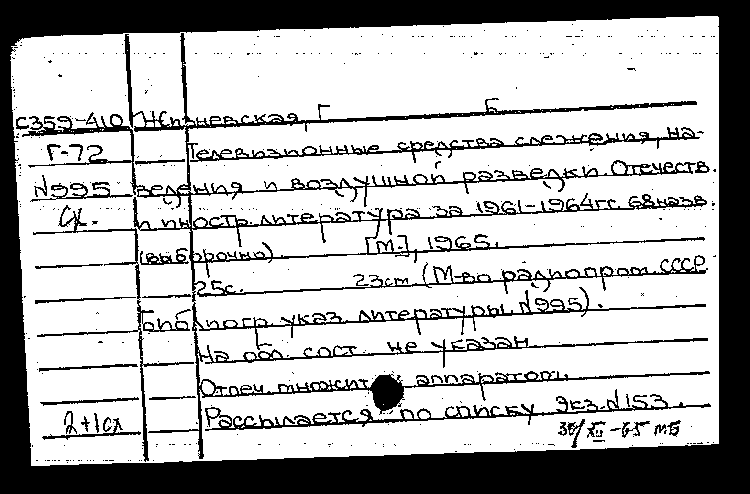 С359-410 Жизневская, Г Б.
Г-72 Телевизионные средства слежения, на-
N995 ведения и воздушной разведки. Отечеств.
сх. и иностр. литература за 1961-1964гг. 68 назв.
(выборочно). [М.], 1965.
25с. 23см (М-во радиопром. СССР
Библиогр. указ. литературы. N995).
На обл. сост. не указан.
Отпеч. множит аппаратом.
2+1сх Рассылается по списку Экз. N153.
30/XII-65 МБ